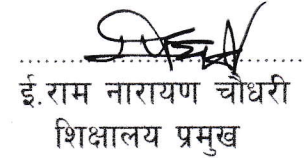 ई.राम नारायण चौधरी
शिक्षालय प्रमुख